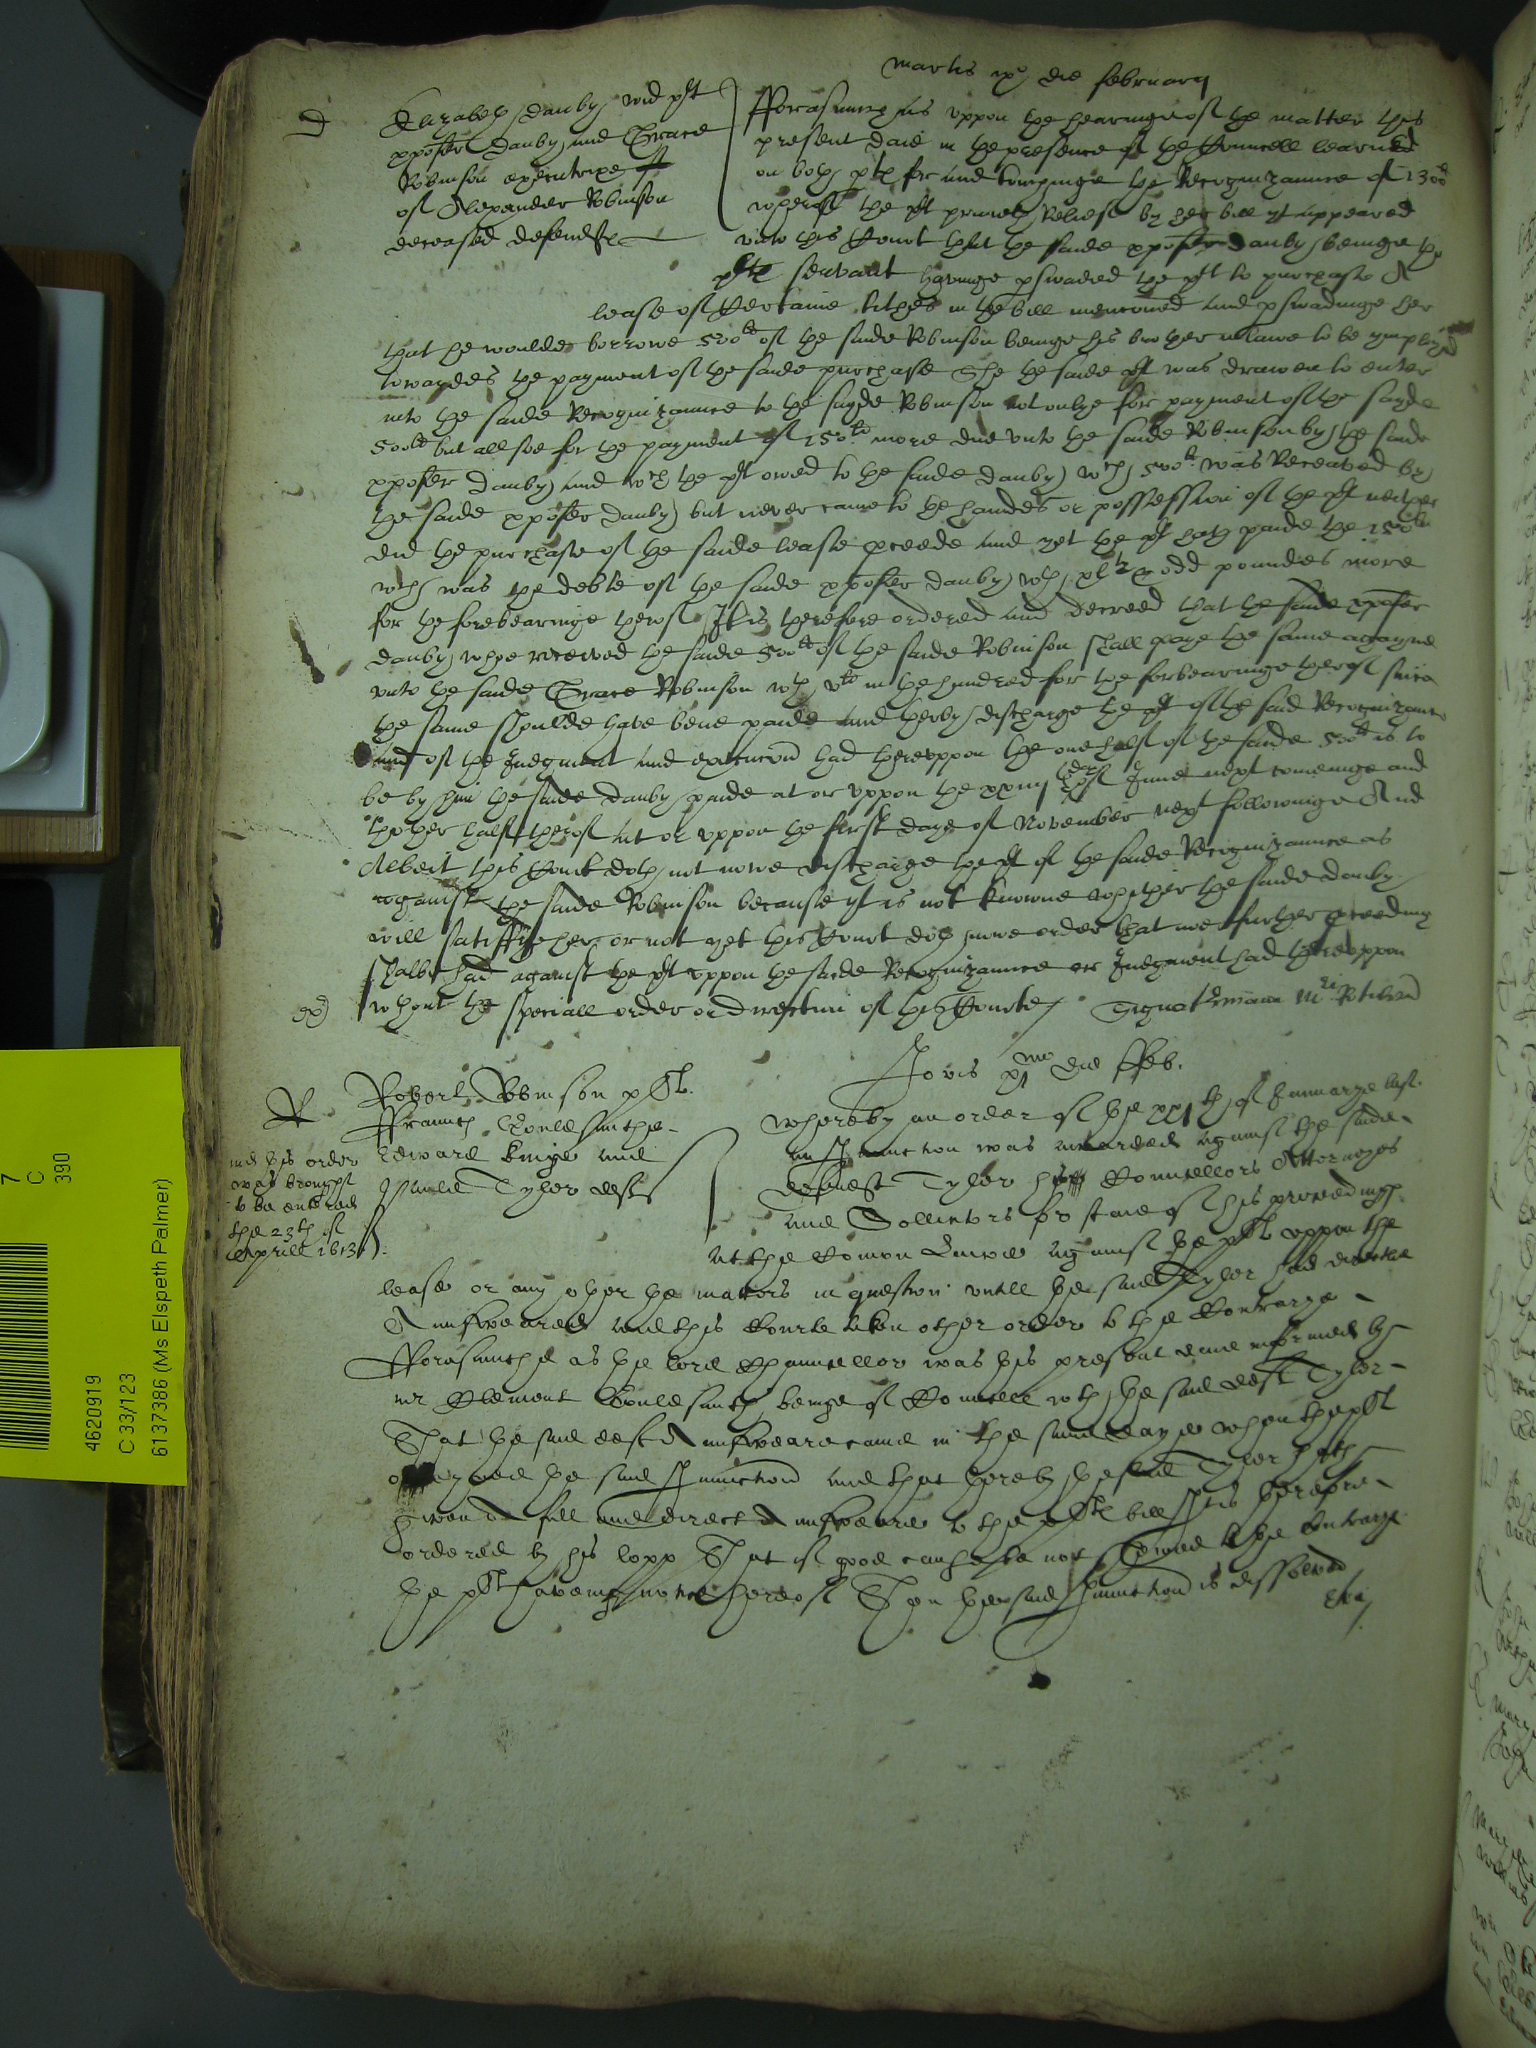 Martis ixº die februarij
D
Elizabeth Danby wid plt
xpofer Danby and Grace
Robinson executrixe
of Alexander Robinson
deceased defendtes
fforasmuch as uppon the hearinge of the matter this
present daie in the presence of the Councell learned
on both ptes for and touchinge the Recognizaunce of 1300li
wherof the plt prayeth Reliefe by her bill yt appeared
unto this Court that the saide xpofer Danby beinge the
pltes servant havinge pswaded the plt to purchase A
lease of certaine tithes in the bill mencioned and pswadinge her
that he woulde borrowe 500li of the saide Robinson beinge his brother in lawe to be ymployed
towardes the payment of the saide purchase She the saide plt was drawen to enter
into the saide Recognizaunce to the sayde Robinson not onlye for payment of the sayde
500li but allsoe for the payment of 150li more due unto the saide Robinson by the saide
xpofer Danby and wch the plt owed to the saide Danby wch 500li was Receaved by
the saide xpofer Danby but never came to the handes or possession of the plt neither
did the purchase of the saide lease pceede and yet the plt hath paide the 150li
wch was the debte of the saide xpofer Danby wth odd poundes more
for the forebearinge therof It is therefore ordered and decreed that the saide xpofer
Danby whoe received the saide 500li of the saide Robinson shall paye the same agayne
unto the saide Grace Robinson wth vli in the hundred for the forbearinge therof since
the same shoulde have bene paide and therby discharge the plt of the said Recognizaunce
and of the Judgment and execucion had thereuppon the one half of the saide 500li is to
be by him the saide Danby paide at or uppon the xxiiijth day of June next comeinge and
thother half therof at or uppon the first daye of November next followinge And
Albeit this Court doth not nowe discharge the plt of the saide Recognizaunce as
against the saide Robinson because yt is not knowne whether the saide Danby
will satisfye her or not yet this Court doth nowe order that noe further pceeding
shalbe had against the plt uppon the saide Recognizaunce or Judgment had thereuppon
wthout the speciall order or direction of this Courte
Jovis xjmo die ffeb.
R
Robert Robinson plt.
ffrauncis Gouldsmithe
Edward Kinge and
Tyler defts
and this order
was brought
to be entered
the 23th of
Aprill 1613
Whereby an order of the xxjth of Januarye last
an Jniunction was awarded against the saide
defendt Tyler his Councellors Attorneyes
and Sollicitors for staie of his proceedings
at the Comon Lawe against the plt uppon the
lease or any other the matters in question untill the said Tyler had directlie
Aunsweared and this Courte taken other order to the Contrarye
fforasmuche as the lord Chauncellor was this present daie informed by
mr Clement Gouldsmith beinge of Councell wth the said deft Tyler
That the said deftes Aunsweare came in the same daye when the plt
the said Jniunction and that therby the said Tyler hath
given A full and direct Aunsweare to the pltes bill It is therefore
ordered by his lopp That if good cause be not shewed to the Contrarye
the plt haveing notice hereof Then the said Jniunction is dissolved
7
C
390
4620919
C 33/123
6137386 (Ms Elspeth Palmer)